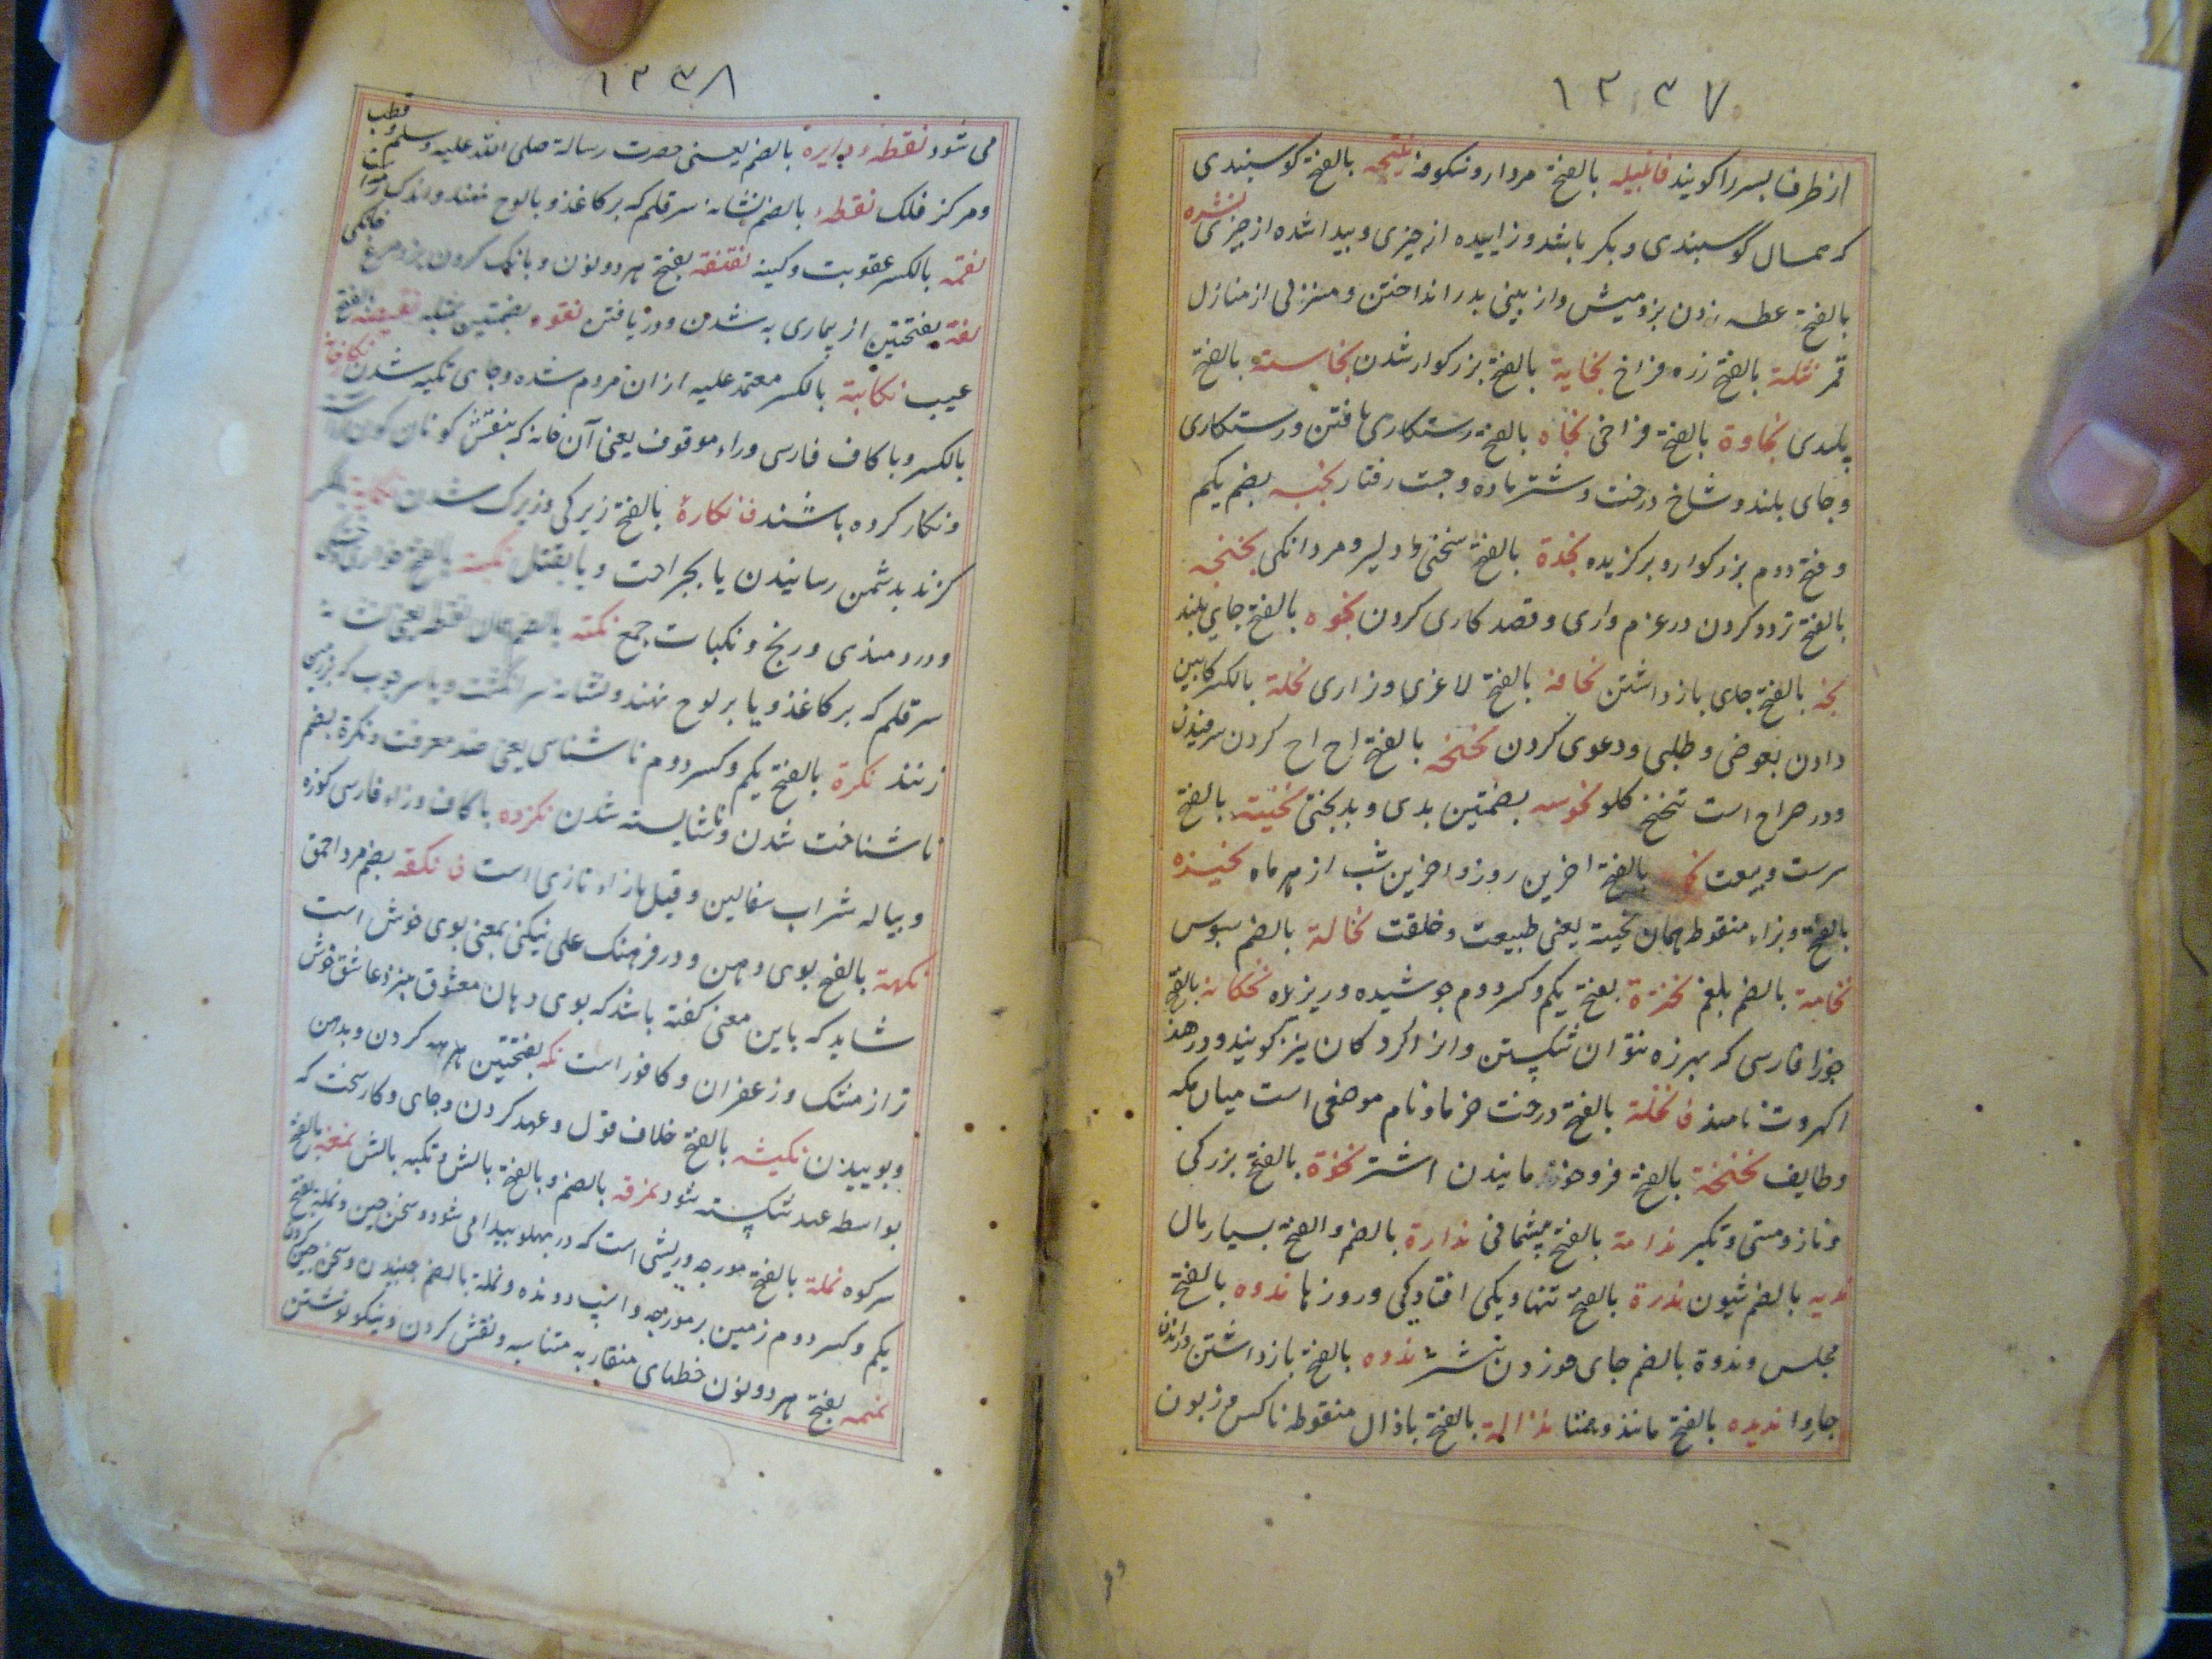 ١٢٣٧
از طرف پسر را گویند ف نبیله بالفتح مردار و شکوفه نتیجه بالفتح گوسپندی
که همسال گوسپندی دیگر باشد و زاییده از چیزی و پیدا شده از چیزی نثره
بالفتح عطسه زدن بز و میش و از بینی بدر انداختن و منزلی از منازل
قمر نثلة بالفتح زره فراخ نجابة بالفتح بزرگوار شدن نجاسة بالفتح
پلیدی نجاوة بالفتح فراخی نجاة بالفتح رستگاری یافتن و رستگاری
و جای بلند و شاخ درخت و شتر ماده و جست رفتار نجبه بضم یکم
و فتح دوم بزرگوار و برگزیده نجدة بالفتح سختی و دلیر و مردانگی نجنجه
بالفتح تردد کردن در عزم و ارای و قصد کاری کردن نجوه بالفتح جای بلند
نجه بالفتح جای باز داشتن نحافة بالفتح لاغری و زاری نحلة بالکسر کابین
دادن بعوض و طلبی و دعوی کردن نحنحه بالفتح اح اح کردن سرفیدن
و در صراح است تنحنح گلو نحوسة بضمتین بدی و بدبختی نحیتة بالفتح
سرشت و طبیعت بالفتح اخرین روز و اخرین شب از هر ماه نحیزه
بالفتح و بزاء منقوطه همان نحیته یعنی طبیعت و خلقت نخالة بالضم سبوس
نخامة بالضم بلغم نخرة بفتح یکم و کسر دوم پوشیده و ریزیده نخکانه بالفتح
جوز فارسی که بهرزه نتوان شکستن و انرا گردکان نیز گویند و در هند
اکهروت نامند ف نخلة بالفتح درخت خرما و نام موضعی است میان مکه
و طایف نخنخة بالفتح فرو خوابانیدن اشتر نخوة بالفتح بزرگی
و ناز و مستی و تکبر ندامة بالفتح پشیمانی ندارة بالضم و الفتح بسیار مال
ندبه بالضم شیون ندرة بالفتح تنها و یکی افتادگی و روزها ندوه بالفتح
مجلس و ندوة بالضم جای خوردن شتر نذوه بالفتح باز داشتن و راندن
چاروا ندیده بالفتح مانند و همتا نذالة بالفتح با ذال منقوطه ناکس و زبون
١٢٣٨
می شود نقطهٔ دایره بالضم یعنی حضرت رسالة صلی الله علیه وسلم و قطب
و مرکز فلک نقطهٔ بالضم نشانه سر قلم که بر کاغذ و بالوح نهند و اندک
نقمة بالکسر عقوبت و کینه نقنقه بفتح هر دو نون و بانک کردن بز و مرغ خانگی
نقة بفتحتین از بیماری به شدن و دریافتن نقوه بضمتین مثله نقیصه بالفتح
عیب نکابة بالکسر معتمد علیه ازان مردم شده و جای تکیه شدن
بالکسر و با کاف فارسی و راء موقوف یعنی آن خانه که بنقش گوناگون
و نگار کرده باشند ف نکارة بالفتح زیرکی و زیرک شدن نکایة بالکسر
گزند بدشمن رسانیدن یا بجراحت و یا بقتل نکبت بالفتح خواری
و دردمندی و رنج و نکبات جمع نکته بالضم همان نقطه یعنی نشانه
سر قلم که بر کاغذ و یا بر لوح نهند و نشانه سر انگشت و یا سر چوب که بر زمین
زنند نکرة بالفتح یکم و کسر دوم ناشناسی یعنی ضد معرفت و نکرة بضم
ناشناخت شدن و ناشایسته شدن نکزده با کاف و زاء فارسی کوزه
و پیاله شراب سفالین و قیل با زاء تازی است ف نکفه بضم مرد احمق
نکهة بالفتح بوی دهن و در فرهنک علی نیکنی بمعنی بوی خوش است
شاید که باین معنی گفته باشد که بوی دهان معشوق نزد عاشق خوش
تر از مشک و زعفران و کافور است نکه بفتحتین ها ها کردن و بدهن
و بوییدن نکیثه بالفتح خلاف قول و عهد کردن و جای و کار سخت که
بواسطه عهد شکسته شود نمرقه بالضم و بالفتح بالش و تکیه بالش نمغه بالفتح
سرکوه نملة بالفتح مورچه و ریشی است که در پهلو پیدا می شود و سخن چین و نملة بفتح
یکم و کسر دوم زمین پر مورچه و اسپ دونده و نملة بالضم جنبیدن و سخن چینی کردن
نمنمه بفتح هر دو نون خطهای متقارب متشابه و نقش کردن و نیکو نوشتن